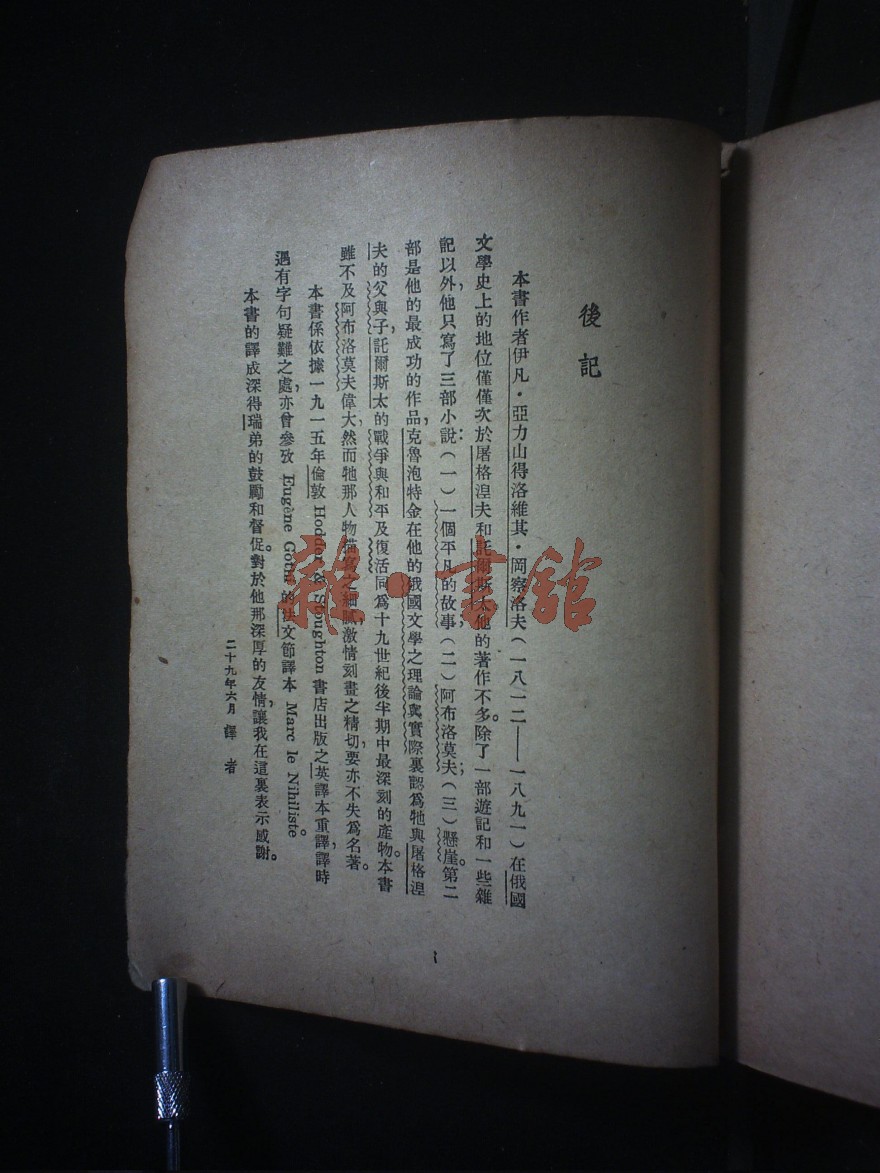 後記
本書作者伊凡・亞力山得洛維其・岡察洛夫(一八一二——一八九一)在俄國
文學史上的地位僅僅次於屠格涅夫和託爾斯太他的著作不多。除了一部遊記和一些雜
記以外,他只寫了三部小說:(一)一個平凡的故事;(二)阿布洛莫夫;(三)懸崖。第二
部是他的最成功的作品,克魯泡特金在他的俄國文學之理論與實際裏認爲牠與屠格涅
夫的父與子,託爾斯太的戰爭與和平及復活同爲十九世紀後半期中最深刻的產物。本書
雖不及阿布洛莫夫偉大,然而牠那人物描寫之細膩,激情刻畫之精切,要亦不失爲名著。
本書係依據一九一五年倫敦 Hodder & Stoughton 書店出版之英譯本重譯,譯時
遇有字句疑難之處,亦曾參攷 Eugène Gothi 的法文節譯本 Marc le Nihiliste。
本書的譯成深得瑞弟的鼓勵和督促。對於他那深厚的友情,讓我在這裏表示感謝。
二十九年六月 譯者
雜・書館